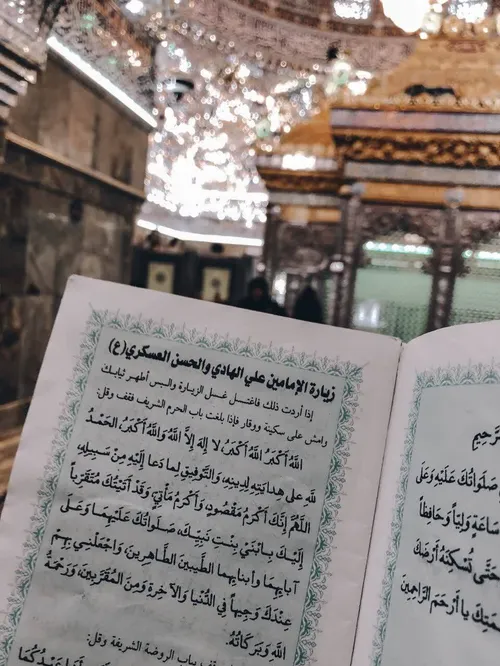 زيارة الإمامين علي الهادي والحسن العسكري(ع)
إذا أردت ذلك فاغتسل غسل الزيارة والبس أطهر ثيابك
وامش على سكينة ووقار فإذا بلغت باب الحرم الشريف فقف وقل:
اللهُ أَكْبَرُ اللهُ أَكْبَرُ، لا إلهَ إلّا اللهُ وَاللهُ أَكْبَرُ، الحَمْدُ
للهِ على هِدايَتِهِ لِدينِهِ، وَالتَّوفيقِ لِما دَعا إلَيْهِ مِنْ سَبيلِهِ،
اللّهُمَّ إنَّكَ أَكْرَمُ مَقْصُودٍ، وَأَكْرَمُ مَأْتِيٍّ، وَقَدْ أَتَيْتُكَ مُتَقَرِّباً
إلَيْكَ بِابْنَيْ بِنْتِ نَبِيِّكَ، صَلَواتُكَ عَلَيْهِما وَعَلى
آبائِهِما وَأَبْنائِهِما الطَّيِّبينَ الطّاهِرينَ، وَاجْعَلْني بِهِمْ
عِنْدَكَ وَجيهاً في الدُّنْيا وَالآخِرَةِ وَمِنَ المُقَرَّبينَ، وَرَحْمَةُ
اللهِ وَبَرَكاتُهُ.
فقف بباب الروضة الشريفة وقل:
الرَّحيمِ
صَلَواتُكَ عَلَيْهِ وَعَلى
ساعَةٍ وَلِيّاً وَحافِظاً
حَتّى تُسْكِنَهُ أَرْضَكَ
يا أَرْحَمَ الرّاحِمينَ